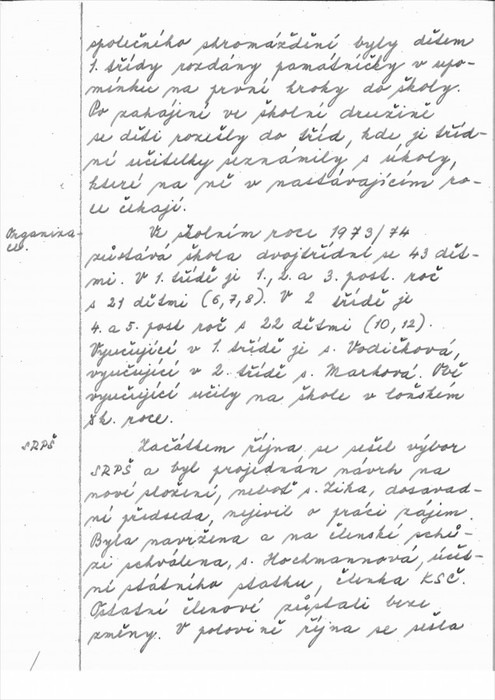 společného shromáždění byly dětem
1. třídy rozdány památníčky v upo-
mínku na první kroky do školy.
Po zahájení ve školní družině
se děti rozešly do tříd, kde je tříd-
ní učitelky seznámily s úkoly,
které na ně v nastávajícím ro-
ce čekají.
Organiza-
ce.
Ve školním roce 1973/74
zůstává škola dvojtřídní se 43 dět-
mi. V 1. třídě je 1., 2. a 3. post. roč
s 21 dětmi (6,7,8). V 2 třídě je
4. a 5. post roč s 22 dětmi (10,12).
Vyučující v 1. třídě je s. Vodičková,
vyučující v 2. třídě s. Marková. Obě
vyučující učily na škole v loňském
šk. roce.
SRPŠ
Začátkem října se sešel výbor
SRPŠ a byl projednán návrh na
nové složení, neboť s. Zika, dosavad-
ní předseda, nejevil o práci zájem.
Byla navržena a na členské schů-
zi schválena, s. Hochmannová, účet-
ní státního statku, členka KSČ.
Ostatní členové zůstali beze
změny. V polovině října se sešla